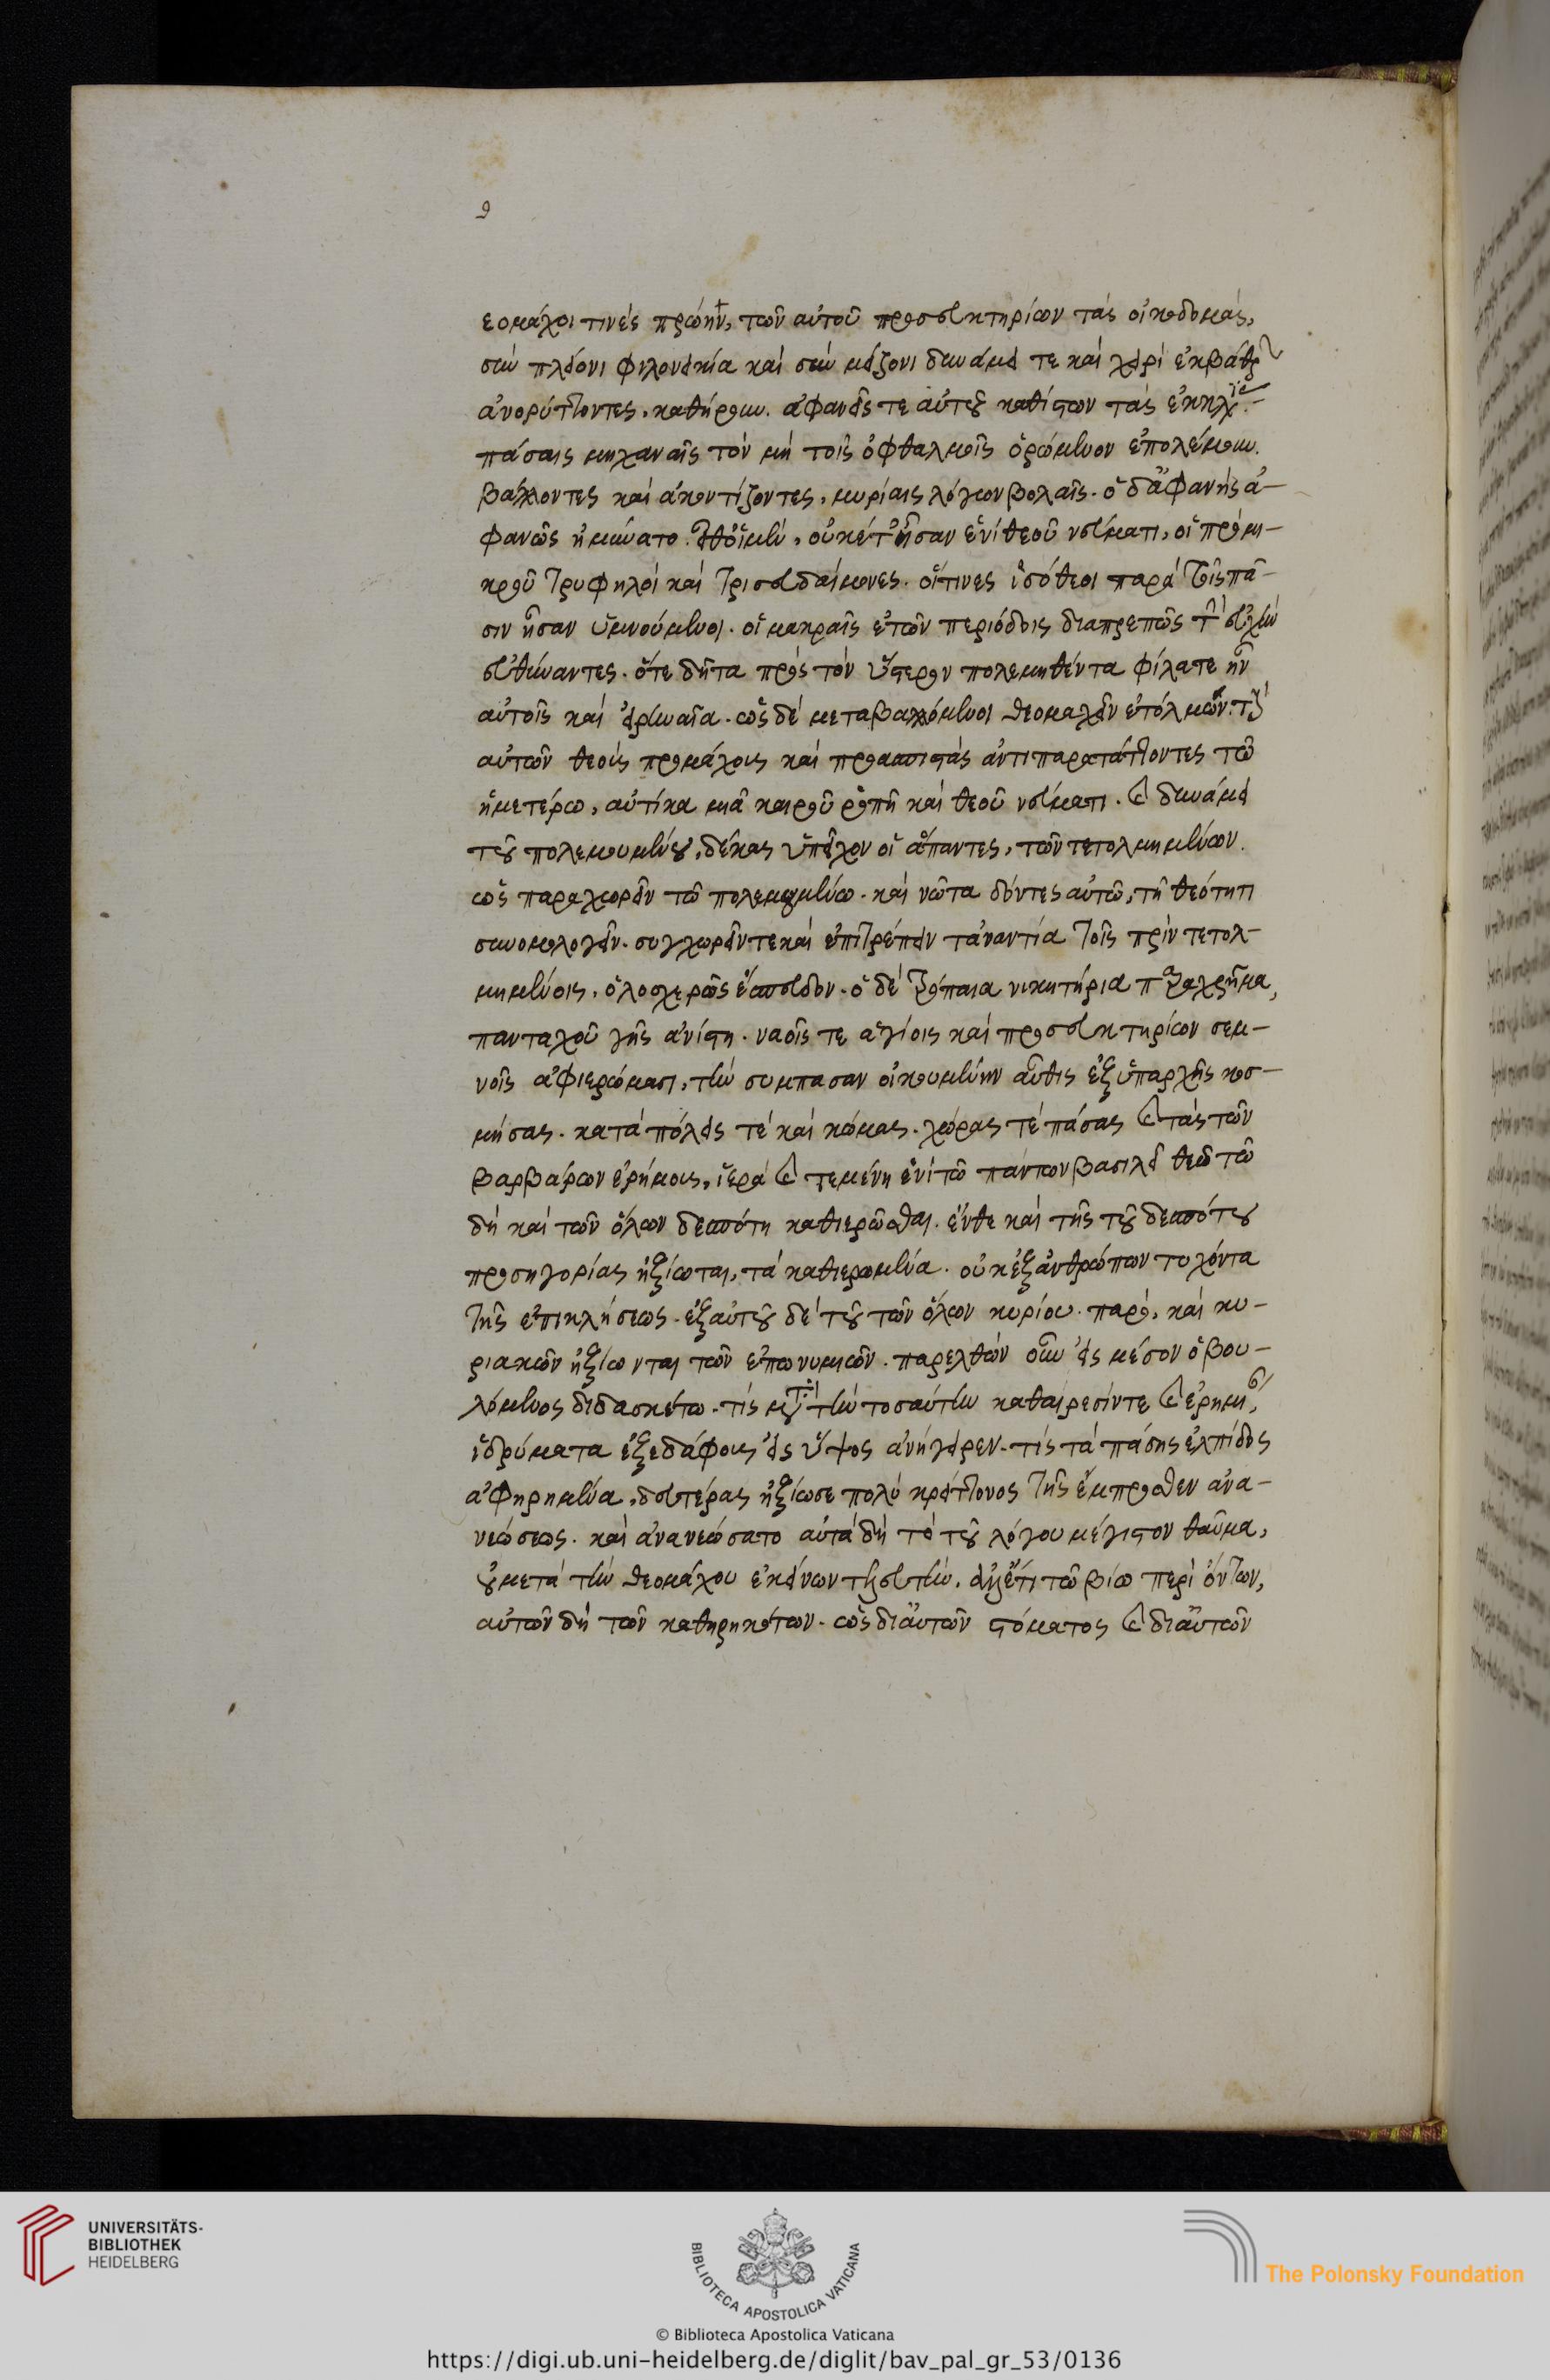 ϑ
εομάχοι τινὲς πρώην, τῶν αὐτοῦ προσευκτηρίων τὰς οἰκοδομὰς,
σὺν πλείονι φιλονεικία καὶ σὺν μείζονι δυνάμει τε καὶ χειρὶ ἐκ βάθρων
ἀνορύττοντες, καθήρουν. ἀφανεῖς τε αὐτοῦ καθίστων τὰς ἐκκλησίας.
πάσαις μηχαναῖς τὸν μὴ τοῖς ὀφθαλμοῖς ὁρώμενον ἐπολέμουν.
βάλλοντες καὶ ἀκοντίζοντες, μυρίαις λόγων βολαῖς. ὁ δ' ἀφανὴς ἀ-
φανῶς ἠμύνατο. εἶθ' οἱ μὲν, οὐκέτ' ἦσαν ἑνὶ θεοῦ νεύματι, οἱ πρὸ μι-
κροῦ τρυφηλοὶ καὶ τρισευδαίμονες. οἵτινες ἰσόθεοι παρὰ τοῖς πᾶ-
σιν ἦσαν ὑμνούμενοι. οἱ μακραῖς ἐτῶν περιόδοις διαπρεπῶς τὴν ἀρχὴν
εὐθύναντες. ὅτε δῆτα πρὸς τὸν ὕστερον πολεμηθέντα φίλα τε ἦν
αὐτοῖς καὶ εἰρηναῖα. ὡς δὲ μεταβαλλόμενοι θεομαχεῖν ἐτόλμων. τοὺς
αὐτῶν θεοὺς προμάχους καὶ προασπιστὰς ἀντιπαρατάττοντες τῶ
ἡμετέρω, αὐτίκα μιᾶ καιροῦ ῥοπῆ καὶ θεοῦ νεύματι. καὶ δυνάμει
τοῦ πολεμουμένου, δίκας ὑπεῖχον οἱ ἅπαντες, τῶν τετολμημένων.
ὡς παραχωρεῖν τῶ πολεμουμένω. καὶ νῶτα δόντες αὐτῶ, τῆ θεότητι
συνομολογεῖν. συγχωρεῖν τε καὶ ἐπιτρέπειν τἀναντία τοῖς πρὶν τετολ-
μημένοις, ὁλοσχερῶς ἔσπευδον. ὁ δὲ τρόπαια νικητήρια παραχρῆμα,
πανταχοῦ γῆς ἀνίστη. ναοῖς τε ἁγίοις καὶ προσευκτηρίων σεμ-
νοῖς ἀφιερώμασι, τὴν συμπασαν οἰκουμένην αὖθις ἐξ ὑπαρχῆς κοσ-
μήσας. κατὰ πόλεις τὲ καὶ κώμας. χώρας τὲ πάσας καὶ τὰς τῶν
βαρβάρων ἐρήμους, ἱερὰ καὶ τεμένη ἑνὶ τῶ πάντων βασιλεῖ θεῶ τῶ
δὴ καὶ τῶν ὅλων δεσπότη καθιερῶσθαι. ἔνθε καὶ τῆς τοῦ δεσπότου
προσηγορίας ἠξίωται, τὰ καθιερωμένα. οὐκ ἐξ ἀνθρώπων τυχόντα
τῆς ἐπικλήσεως. ἐξ αὐτοῦ δὲ τοῦ τῶν ὅλων κυρίου. παρὸ, καὶ κυ-
ριακῶν ἠξίωνται τῶν ἐπωνυμιῶν. παρελθὼν οὖν εἰς μέσον ὁ βου-
λόμενος διδασκέτω. τίς μετὰ τὴν τοσαύτην καθαίρεσίν τε καὶ ἐρημίαν,
ἱδρύματα ἐξ ἐδάφους εἰς ὕψος ἀνήγειρεν. τίς τὰ πάσης ἐλπίδος
ἀφηρημένα, δευτέρας ἠξίωσε πολὺ κρείττονος τῆς ἔμπροσθεν ἀνα-
νεώσεως. καὶ ἀνανεώσατο αὐτὰ δὴ τὸ τοῦ λόγου μέγιστον θαῦμα,
οὐ μετὰ τὴν θεομάχου ἐκείνων τελευτὴν, ἀλλ' ἔτι τῶ βίω περὶ ὄντων,
αὐτῶν δὴ τῶν καθηρηκότων. ὡς δι' αὐτῶν στόματος καὶ δι' αὐτῶν
UNIVERSITÄTS-
BIBLIOTHEK
HEIDELBERG
BIBLIOTECA APOSTOLICA VATICANA
The Polonsky Foundation
© Biblioteca Apostolica Vaticana
https://digi.ub.uni-heidelberg.de/diglit/bav_pal_gr_53/0136